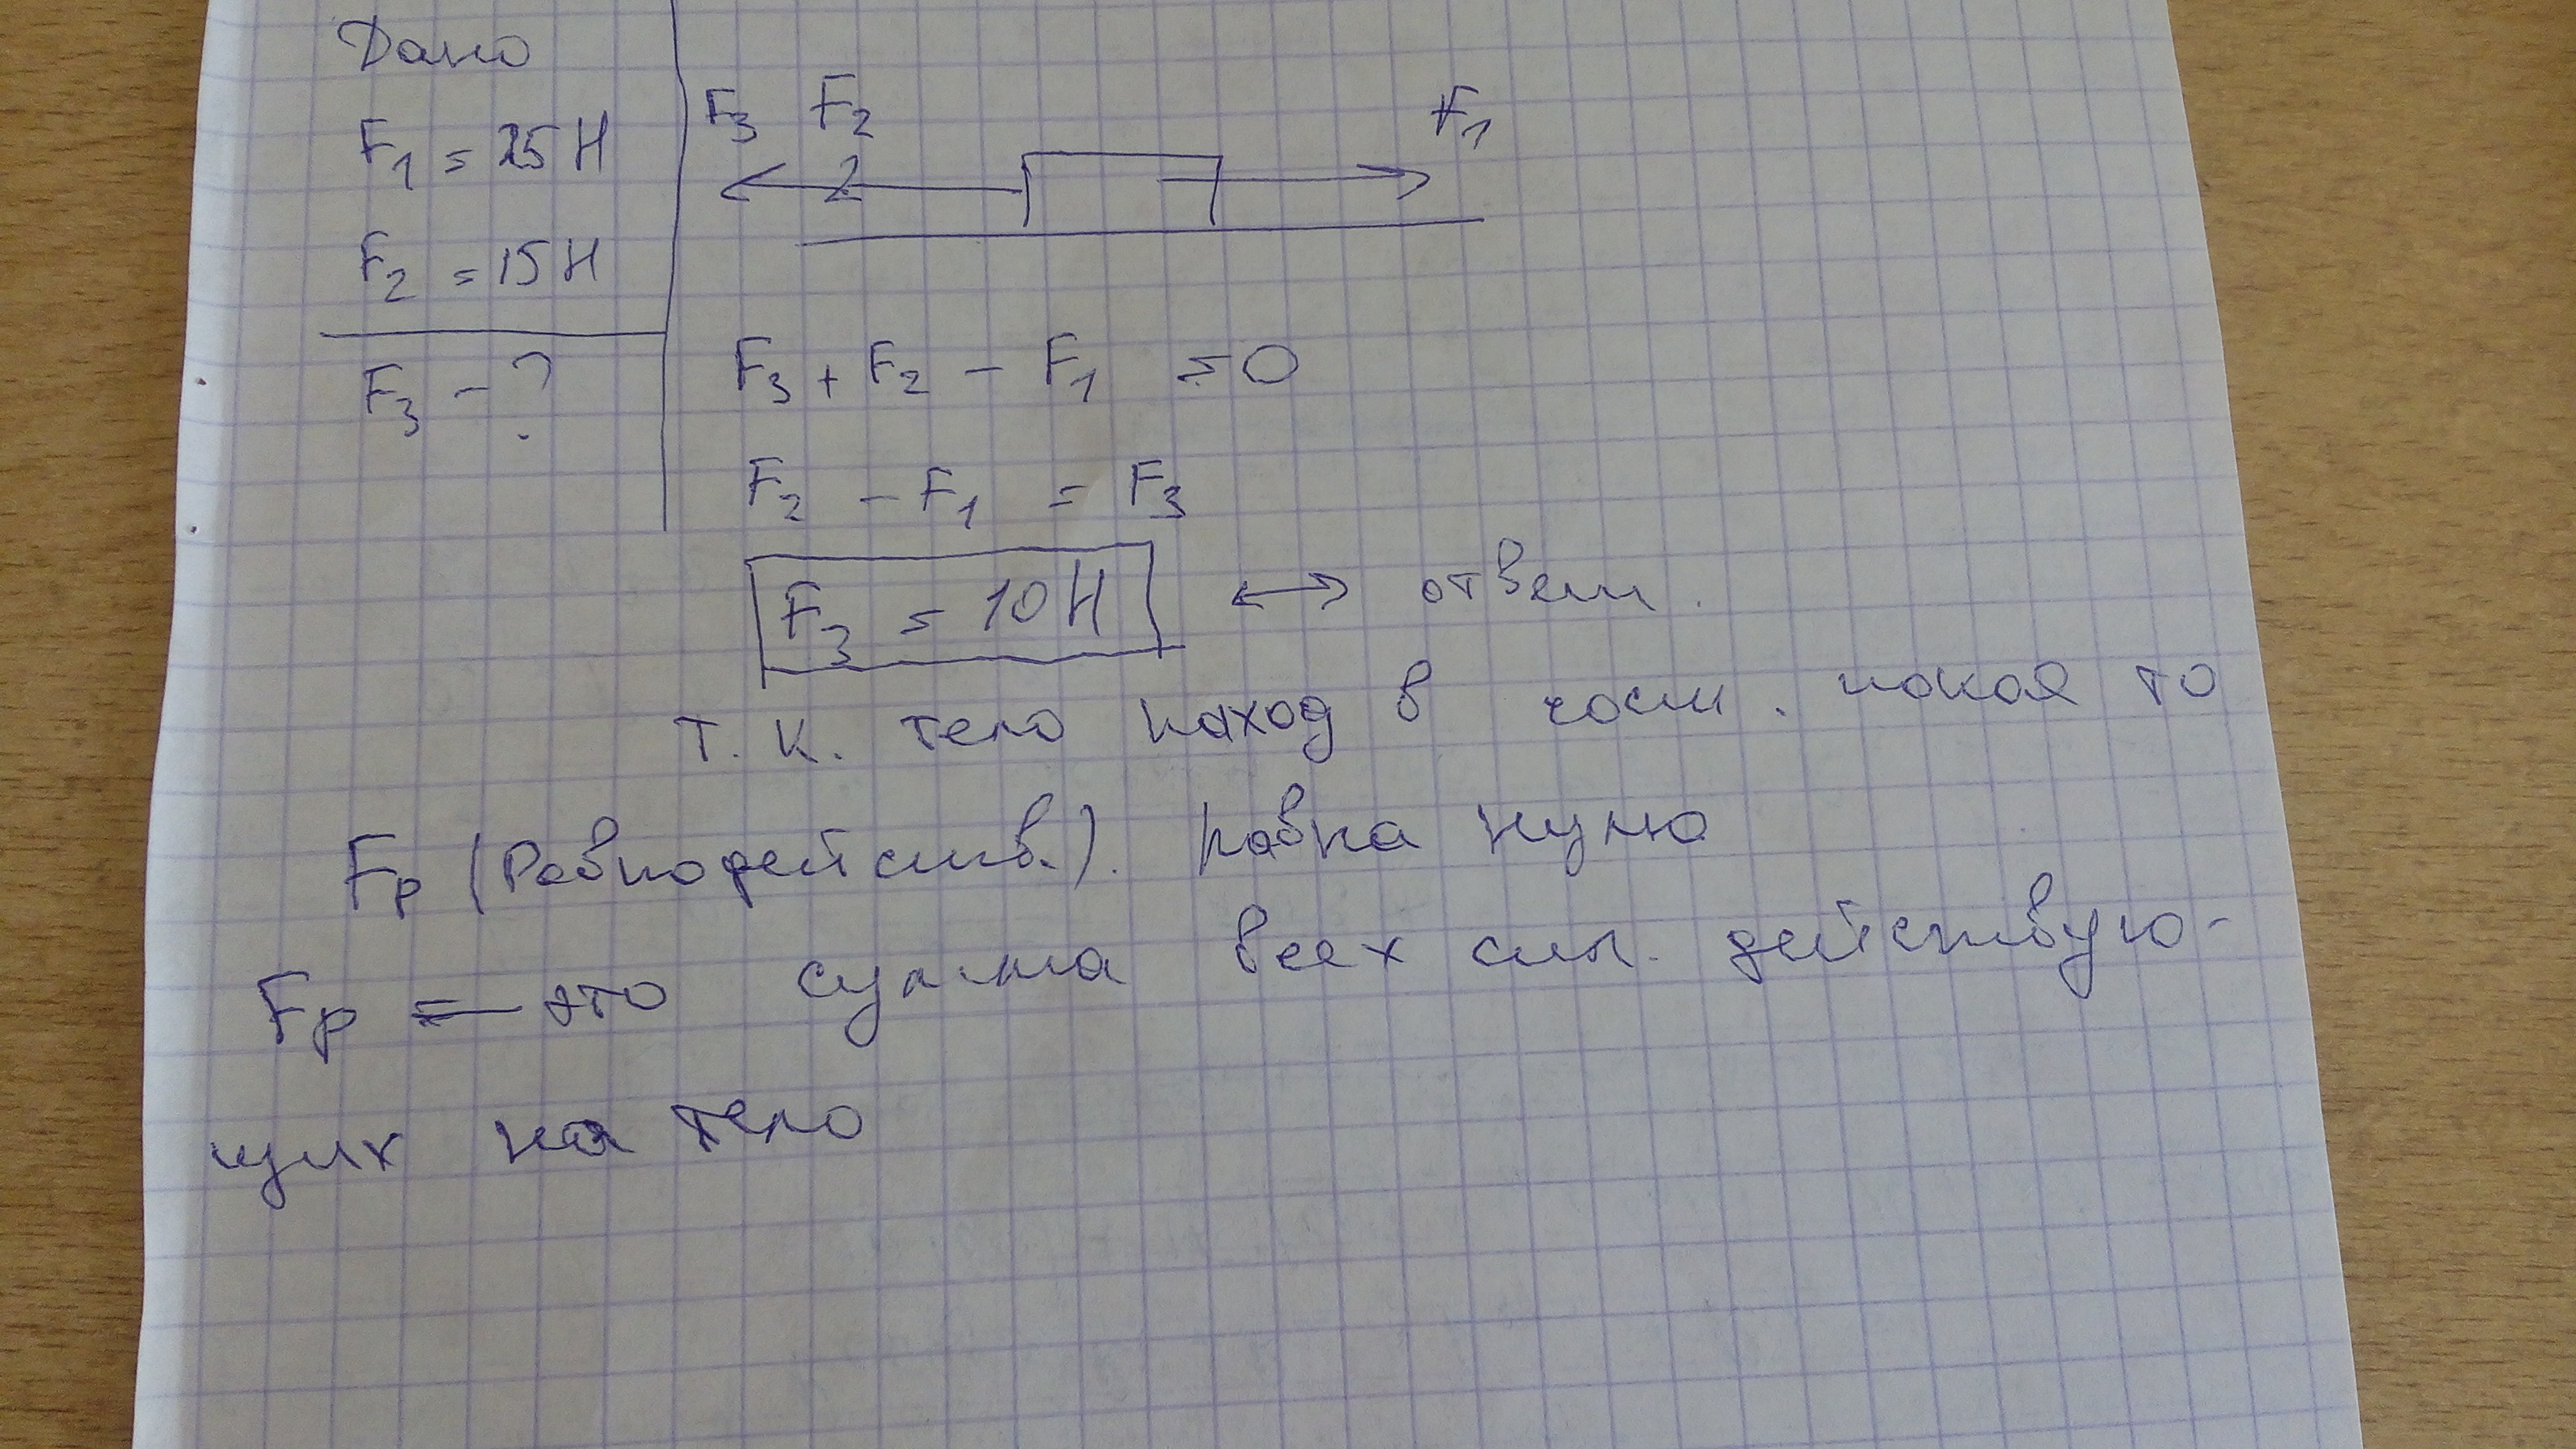 Дано
F₁ = 25 Н
F₂ = 15 Н
F₃ - ?
F₃ F₂ F₁
F₃ + F₂ - F₁ = 0
F₂ - F₁ = F₃
F₃ = 10 Н ↔ ответ.
т. к. тело наход в сост. покоя то
Fр (Равнодейств.). равна нулю
Fр = это сумма всех сил. действую-
щих на тело